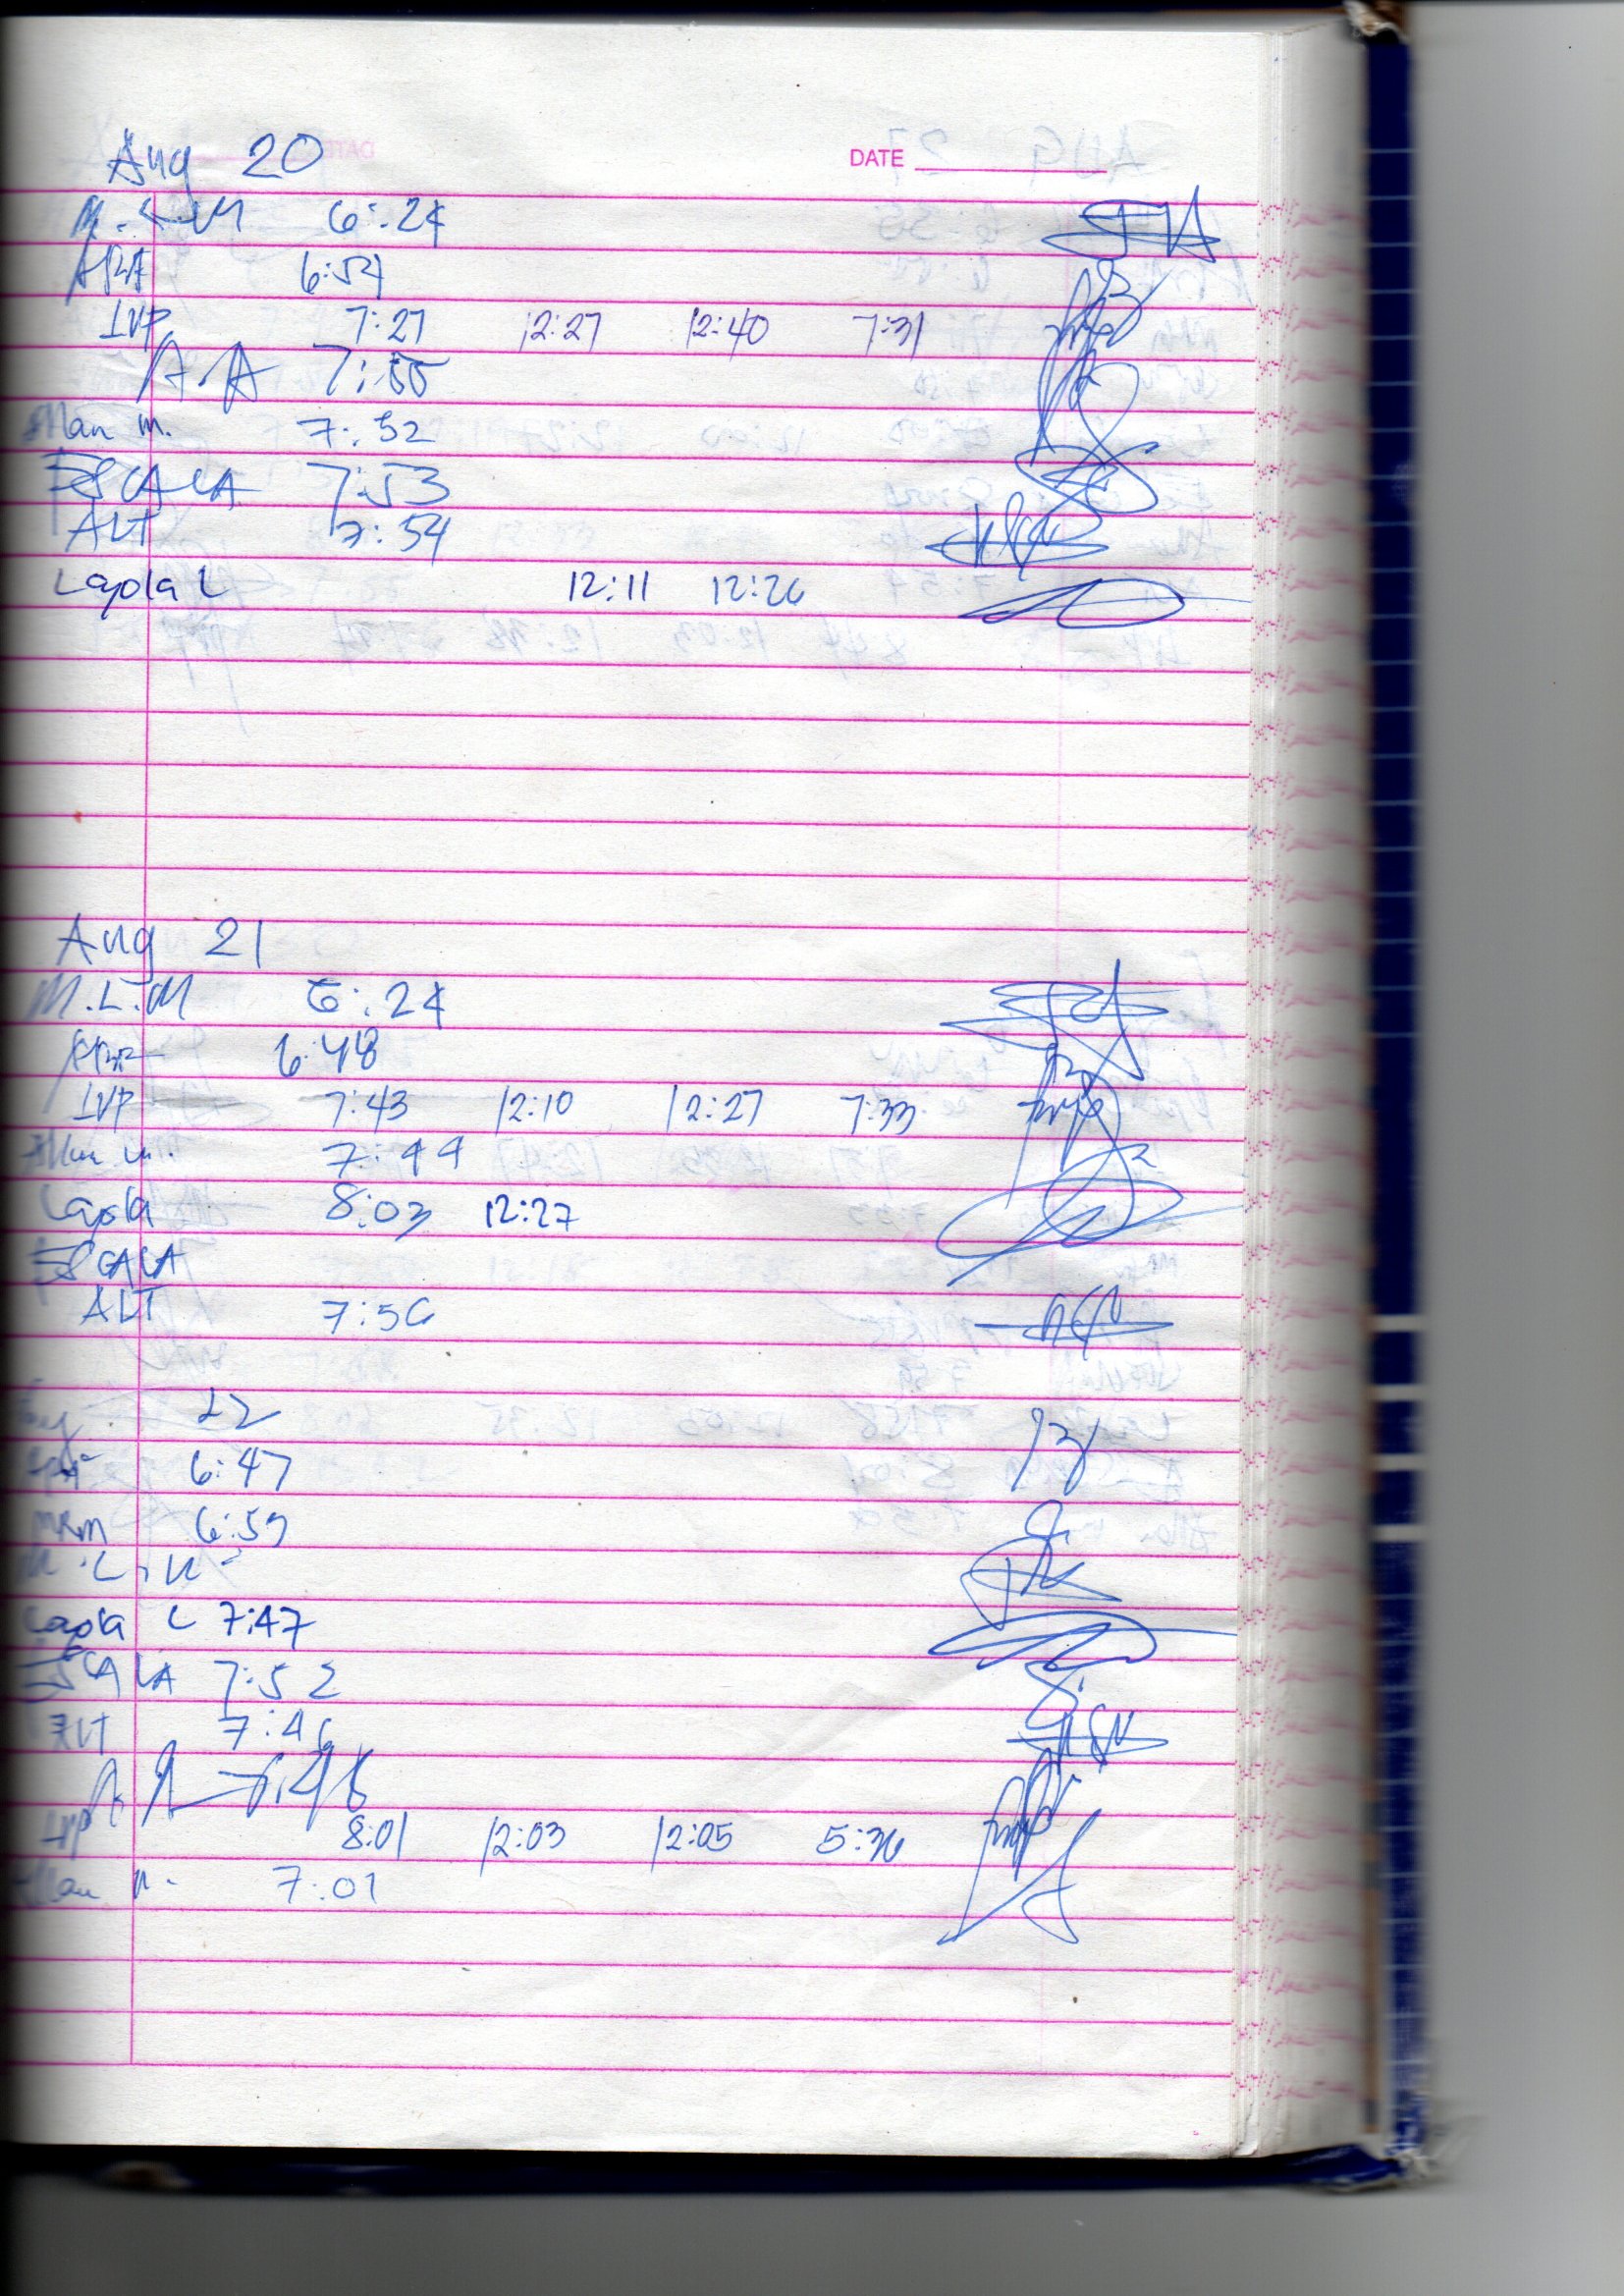 Aug 20 DATE
M.L.M 6:24
ARA 6:54
IVP 7:27 12:27 12:40 7:31
A.A 7:55
Allan m. 7:52
ESCALA 7:53
ALT 7:54
Layola L 12:11 12:26
Aug 21
M.L.M 6:24
6:48
IVP 7:43 12:10 12:27 7:33
Allan m. 7:44
Layola 8:03 12:27
ESCALA
ALT 7:56
Aug 22
6:47
MRM 6:59
M.L.M
Layola L 7:47
ESCALA 7:52
ALT 7:46
A A
IVP 8:01 12:03 12:05 5:36
Allan m. 7:01